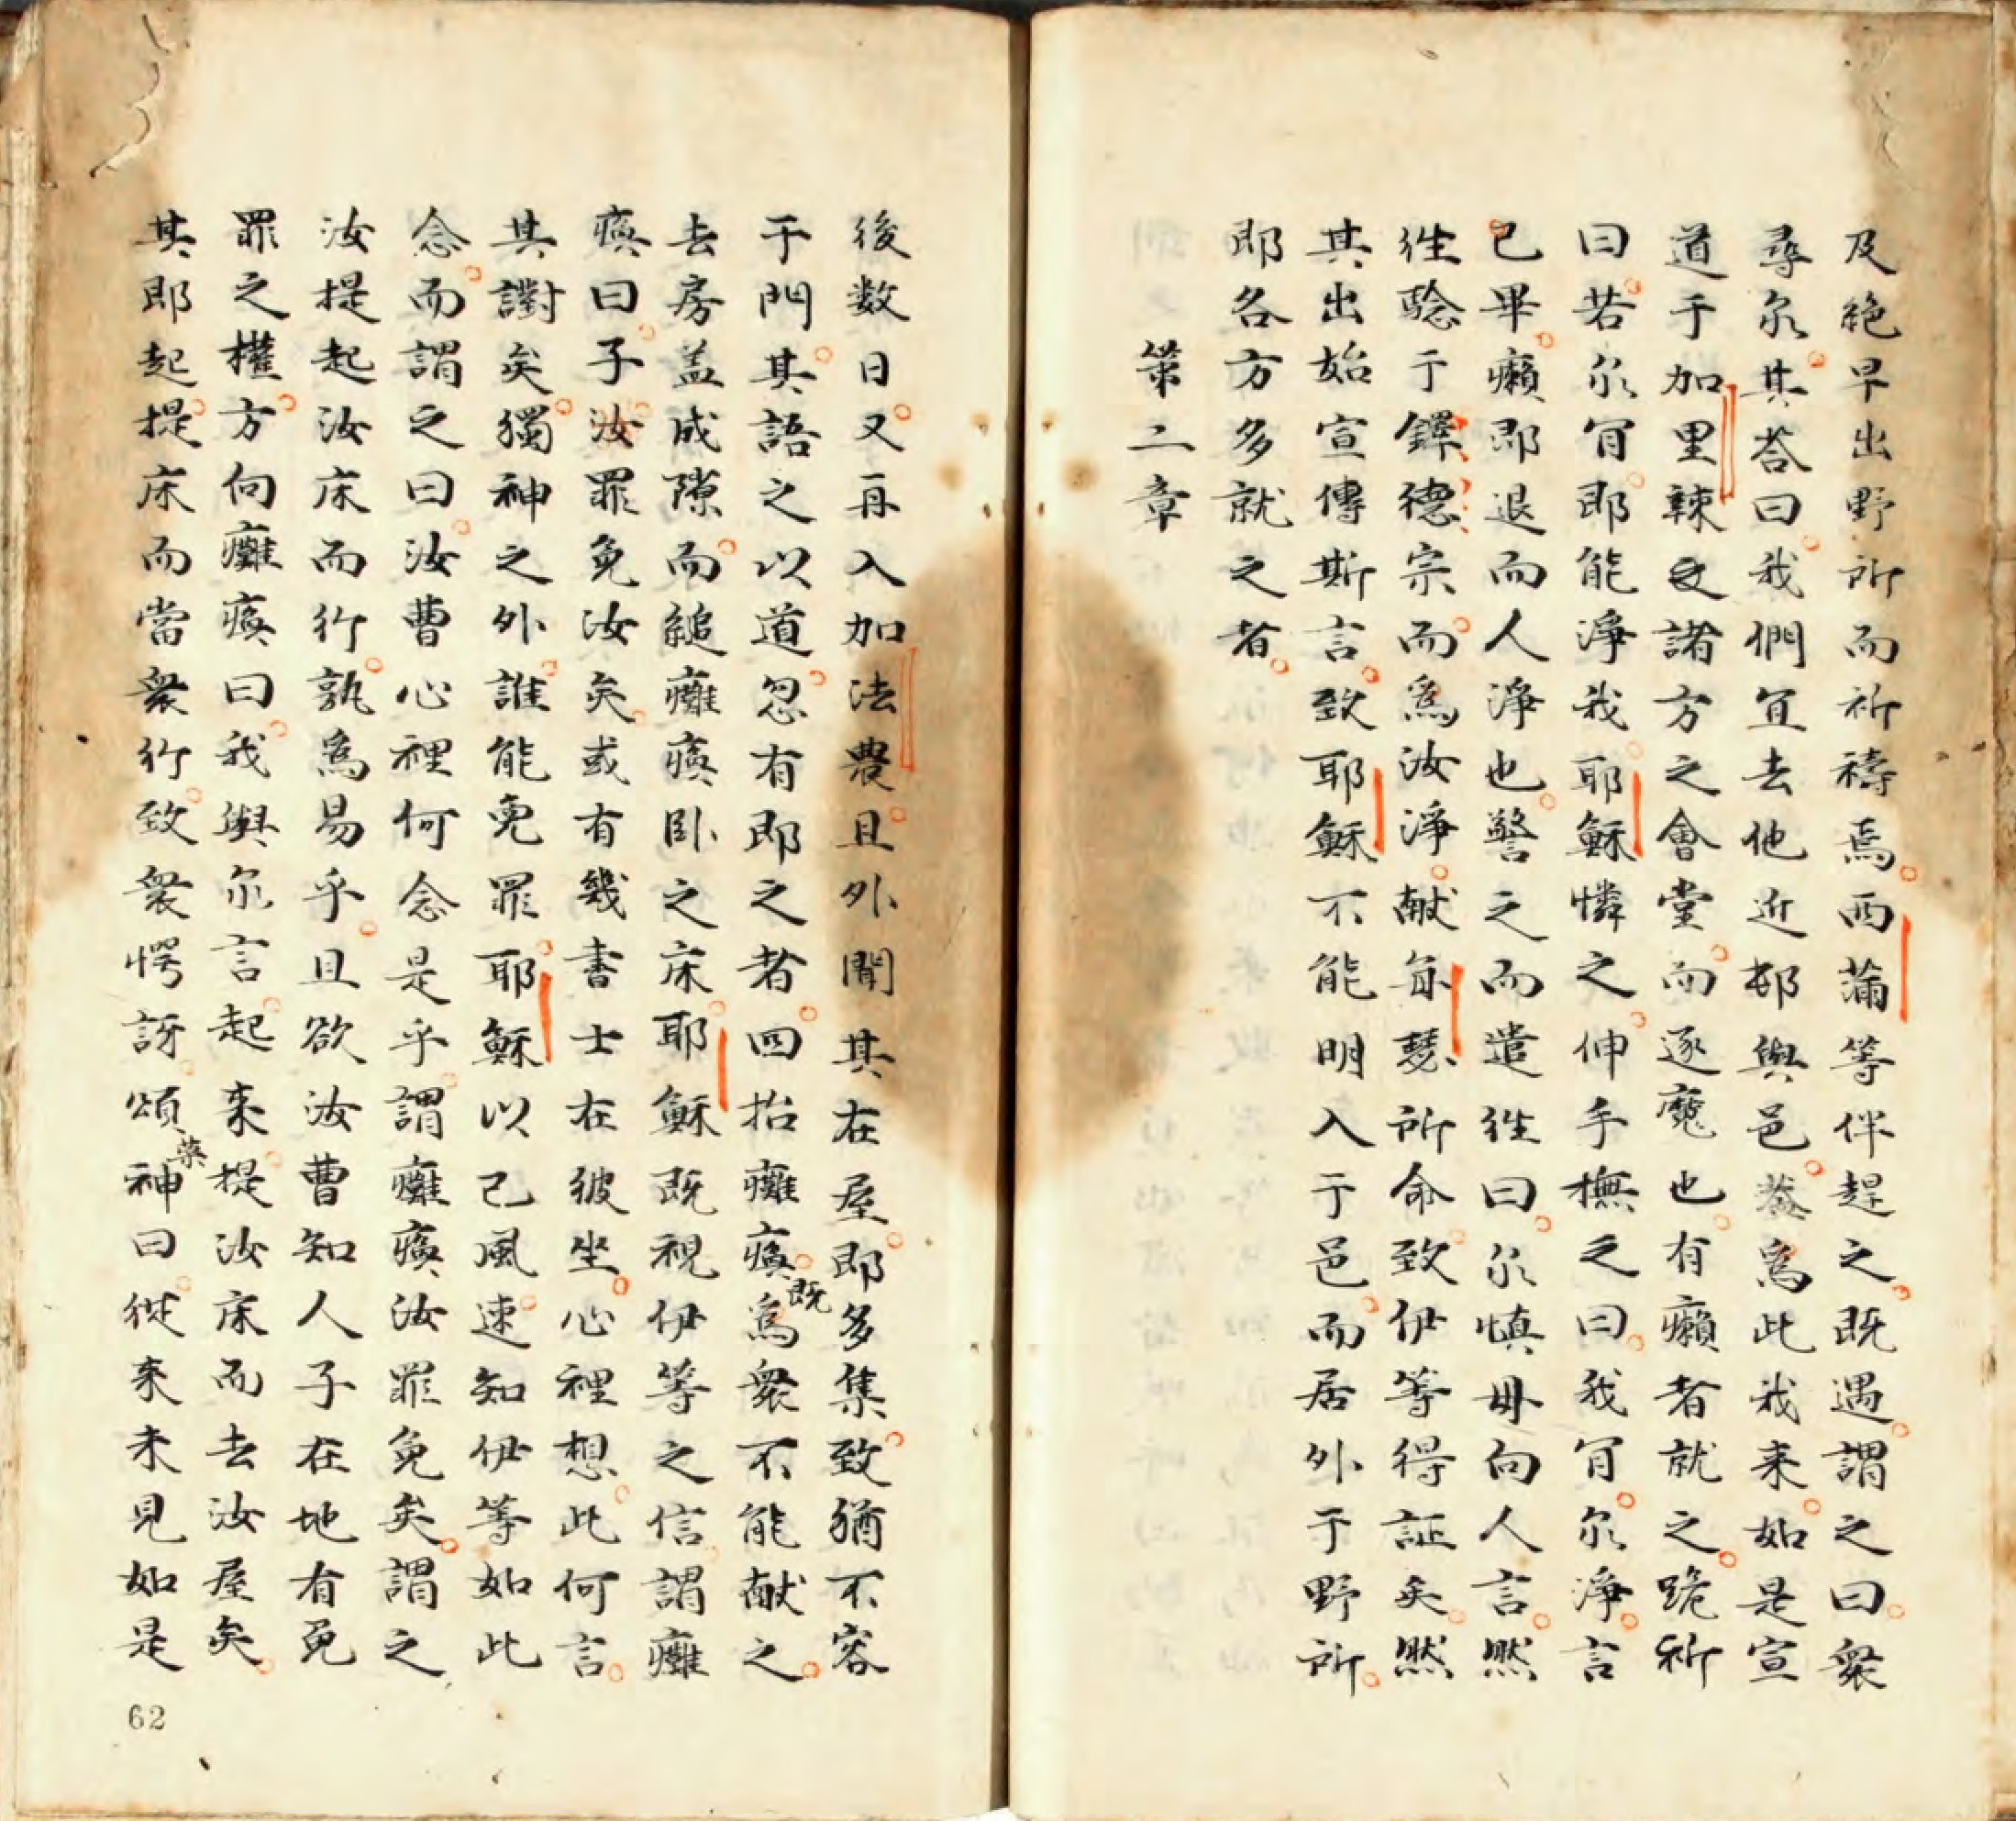 及絶早出野所而祈禱焉。西蒲等伴趕之。既遇。謂之曰。衆
尋尔。其荅曰。我們宜去他近邨與邑。葢爲此我来。如是宣
道于加里辣及諸方之會堂。而逐魔也。有癩者就之。跪祈
曰。若尔肎。即能淨我。耶穌憐之。伸手撫之曰。我肎。尔淨。言
已畢。癩即退而人淨也。警之而遣徃曰。尔慎毋向人言。然
徃騐于鐸德宗。而爲汝淨。献每瑟所命。致伊等得証矣。然
其出始宣傳斯言。致耶穌不能明入于邑。而居外于野所。
即各方多就之者。
第二章
後数日。又再入加法農。且外聞其在屋。即多集。致猶不容
于門。其語之以道。忽有即之者。四抬癱瘓。既爲衆不能献之。
去房盖成隙。而縋癱瘓卧之床。耶穌既視伊等之信。謂癱
瘓曰。子。汝罪免汝矣。或有幾書士在彼坐。心裡想。此何言。
其謝矣。獨神之外。誰能免罪。耶穌以己風。速知伊等如此
念。而謂之曰。汝曹心裡何念是乎。謂癱瘓汝罪免矣。謂之
汝提起汝床而行。孰爲易乎。且欲汝曹知人子在地有免
罪之權。方向癱瘓曰。我與尔言。起来。提汝床而去汝屋矣。
其即起。提床而當衆行。致衆愕訝。頌榮神曰。從来未見如是
62